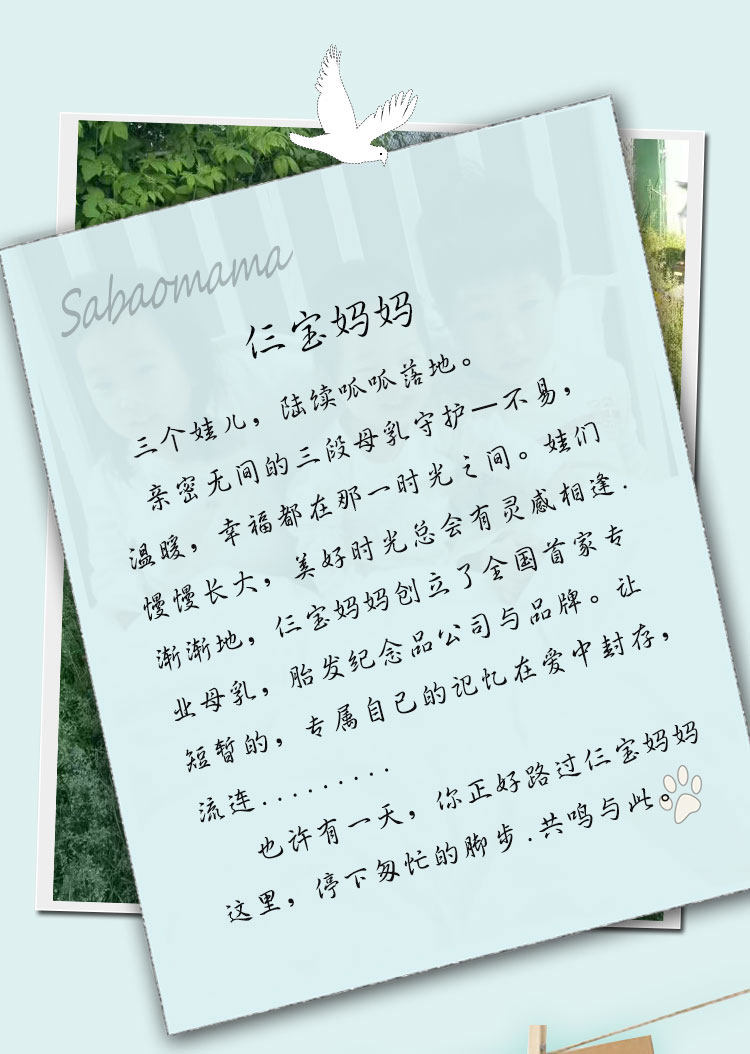 Sabaomama
仨宝妈妈
三个娃儿，陆续呱呱落地。
亲密无间的三段母乳守护一不易，
温暖，幸福都在那一时光之间。娃们
慢慢长大，美好时光总会有灵感相逢.
渐渐地，仨宝妈妈创立了全国首家专
业母乳，胎发纪念品公司与品牌。让
短暂的，专属自己的记忆在爱中封存，
流连.........
也许有一天，你正好路过仨宝妈妈
这里，停下匆忙的脚步.共鸣与此。